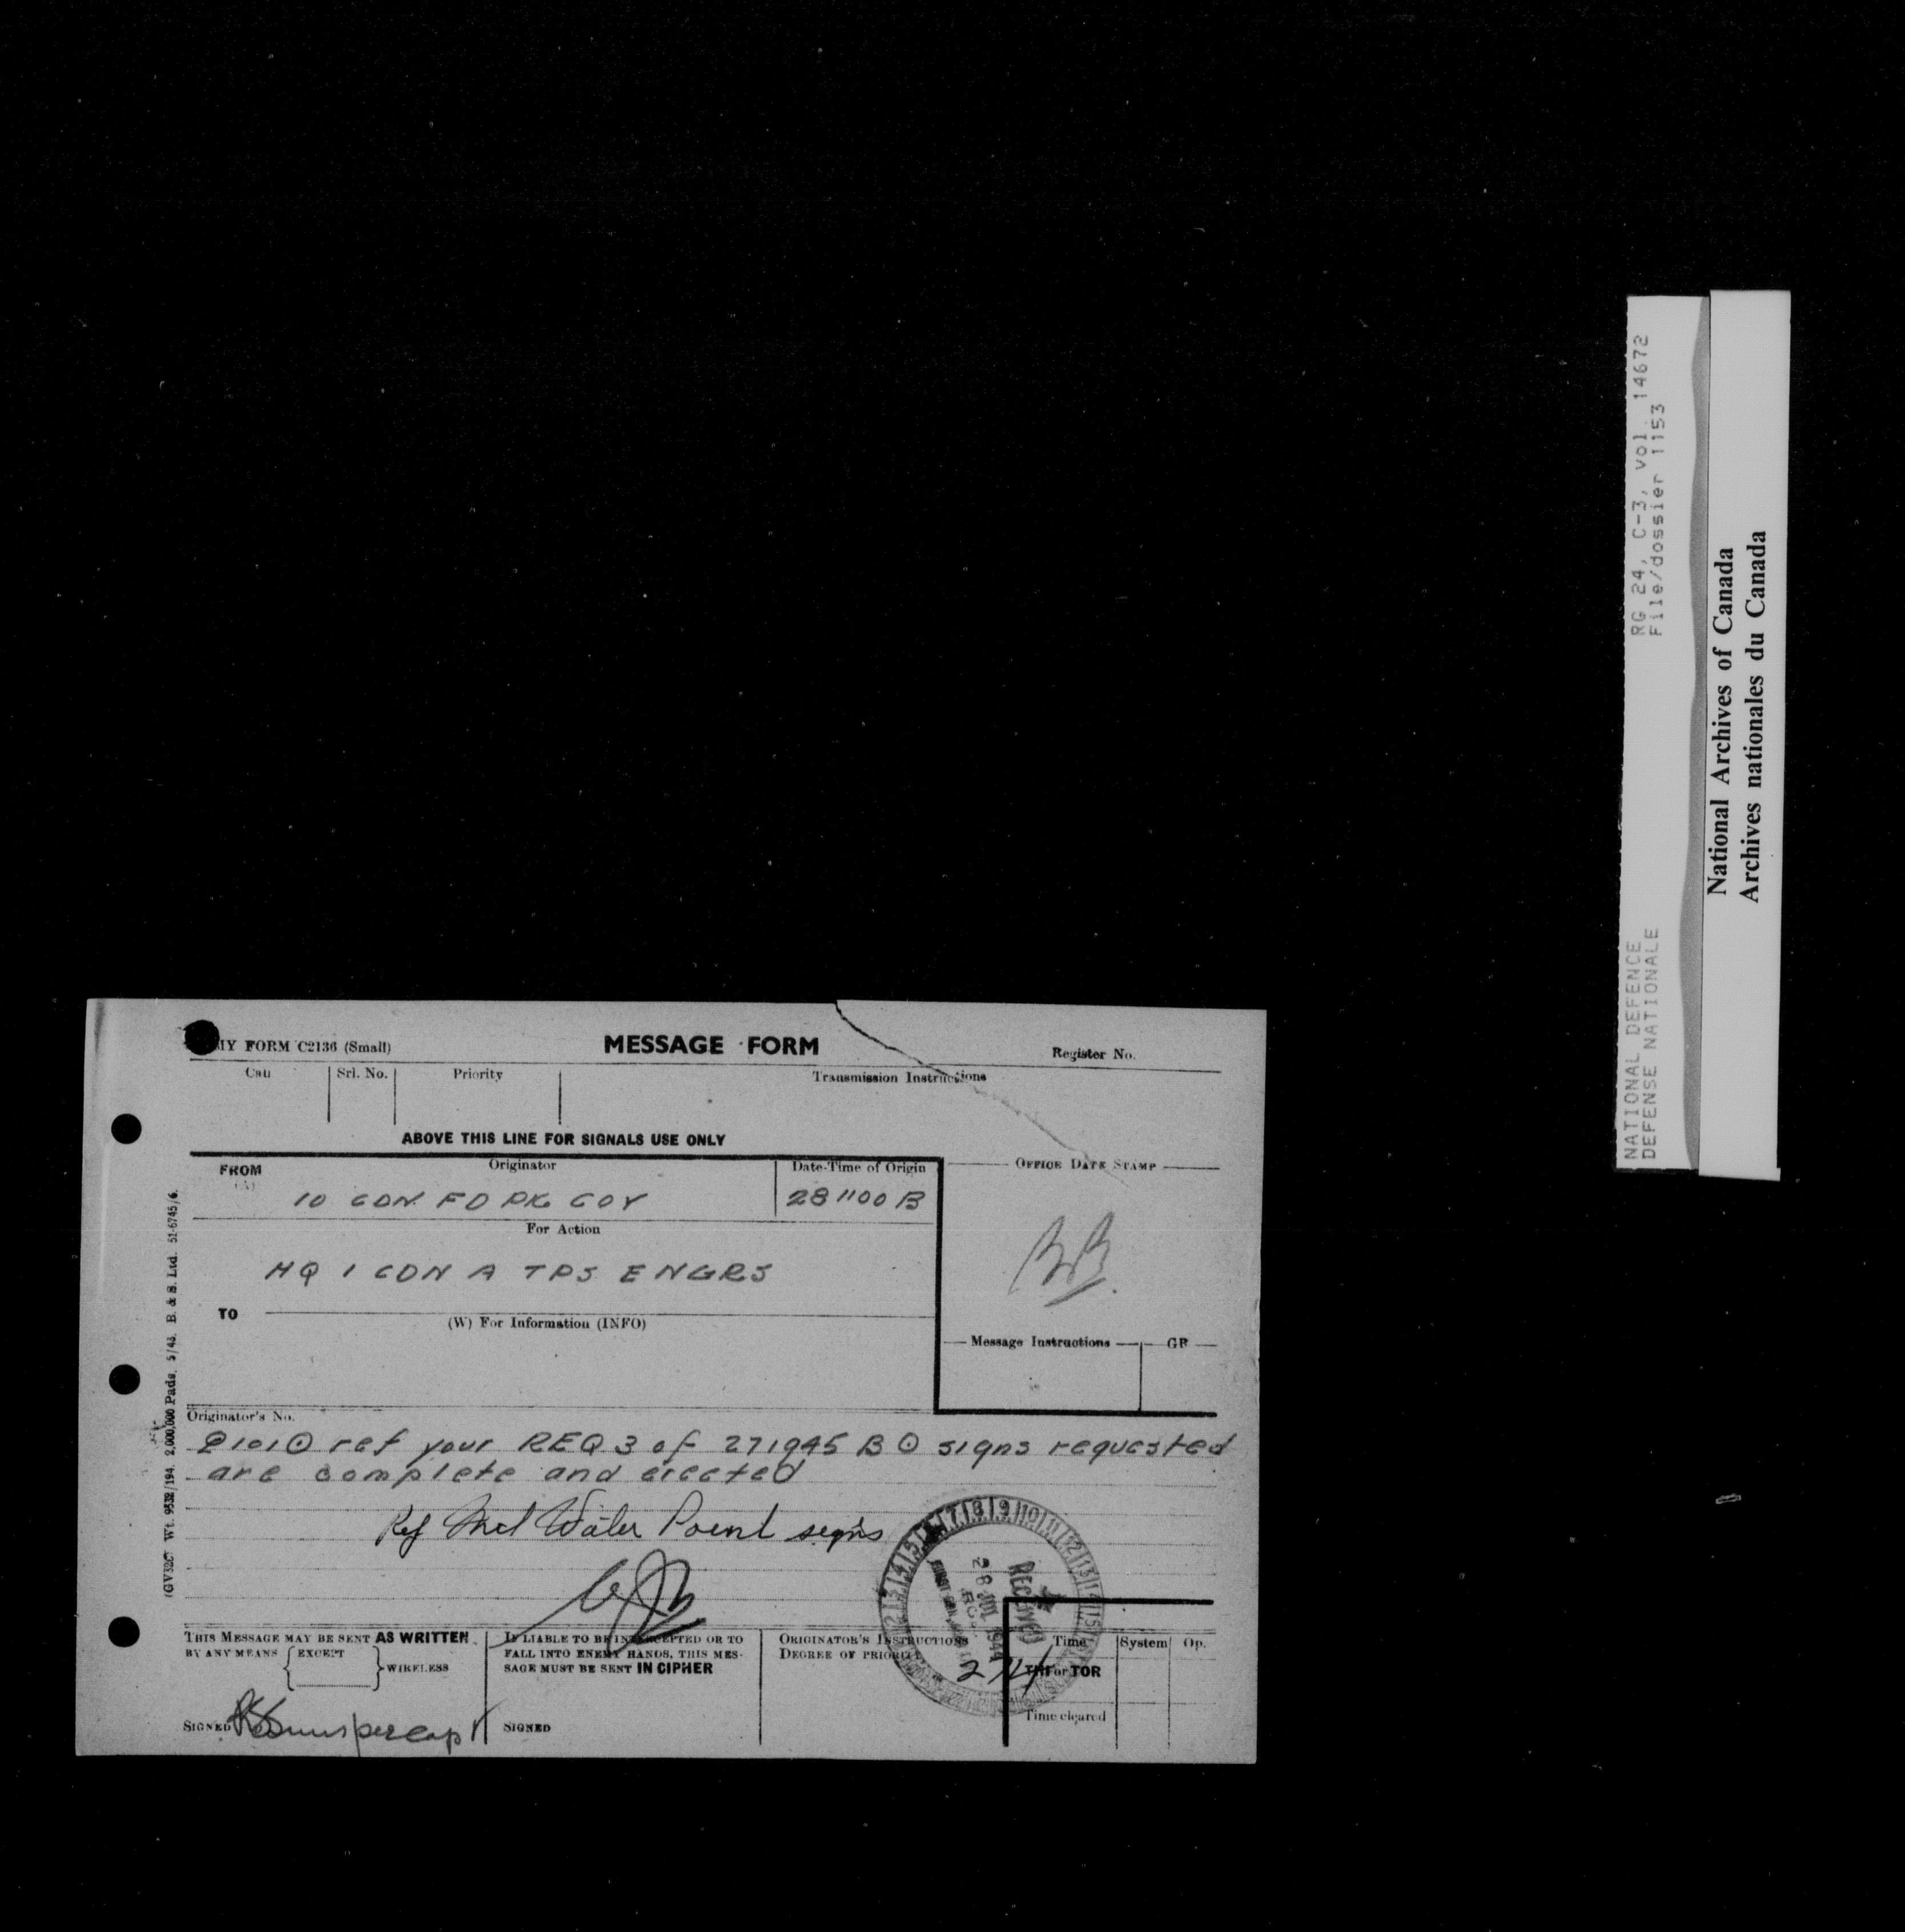 MY FORM C2136 (Small)
MESSAGE FORM
Register No.
Call
Srl. No.
Priority
Transmission Instructions
ABOVE THIS LINE FOR SIGNALS USE ONLY
FROM
(A)
Originator
Date-Time of Origin
OFFICE DATE STAMP
10 CDN FD PK COY
281100 B
For Action
HQ 1 CDN A TPS ENGRS
BB.
TO
(W) For Information (INFO)
Message Instructions
GR
Originator's No.
ref your REQ 3 of 271945 B ⊙ signs requested
are complete and erected
Ref Water Point signs
RECEIVED
28 JUL 1944
THIS MESSAGE MAY BE SENT AS WRITTEN
BY ANY MEANS EXCEPT WIRELESS
SIGNED
IF LIABLE TO BE INTERCEPTED OR TO
FALL INTO ENEMY HANDS, THIS MES-
SAGE MUST BE SENT IN CIPHER
SIGNED
ORIGINATOR'S INSTRUCTIONS
DEGREE OF PRIORITY
Time
System
Op.
THI or TOR
Time cleared
(GV320) Wt. 9532/194. 2,000,000 Pads. 5/43. B. & S. Ltd. 51-6745/6.
NATIONAL DEFENCE
DEFENSE NATIONALE
RG 24, C-3, vol. 14672
File/dossier 1153
National Archives of Canada
Archives nationales du Canada